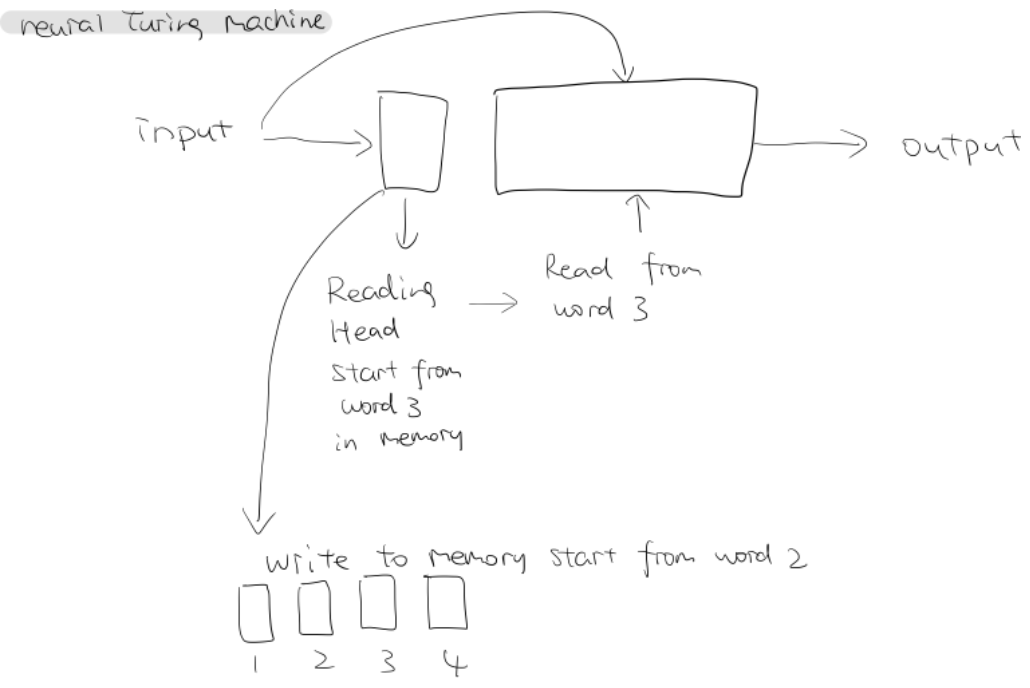 neural Turing machine
input
output
Reading
Head
start from
word 3
in memory
Read from
word 3
write to memory start from word 2
1 2 3 4